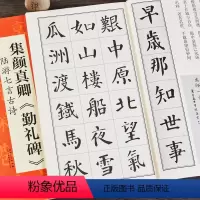 早歲那知世事
艱中原北望氣
如山樓船夜雪
瓜洲渡鐵馬秋
集颜真卿《勤礼碑》
陆游七言古诗
粉象优品